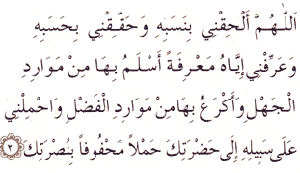 اَللّٰهُمَّ أَلْحِقْنِي بِنَسَبِهِ وَحَقِّقْنِي بِحَسَبِهِ
وَعَرِّفْنِي إِيَّاهُ مَعْرِفَةً أَسْلَمُ بِهَا مِنْ مَوَارِدِ
الْجَهْلِ وَأَكْرَعُ بِهَا مِنْ مَوَارِدِ الْفَضْلِ وَاحْمِلْنِي
عَلَى سَبِيلِهِ إِلَى حَضْرَتِكَ حَمْلاً مَحْفُوفاً بِنُصْرَتِكَ ٢